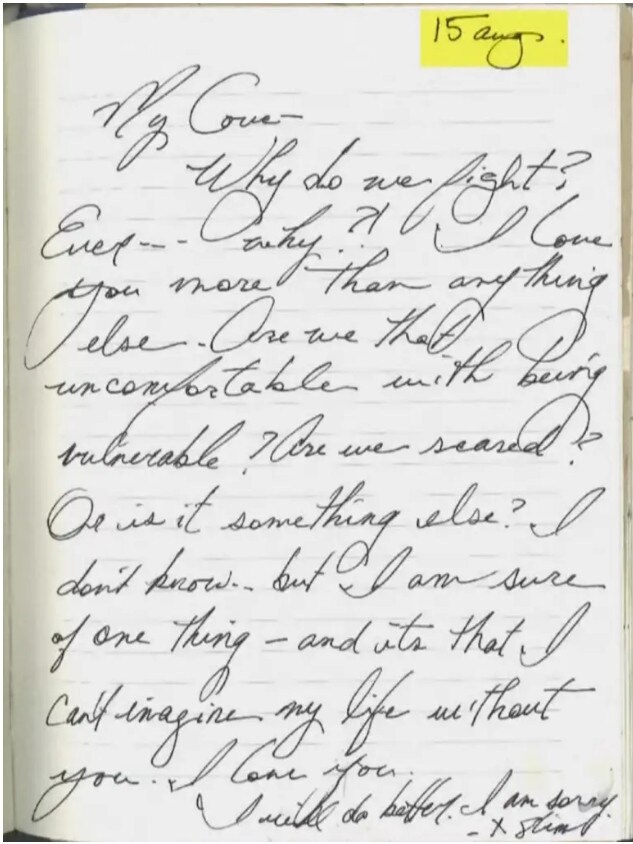 15 aug.
My Love—
Why do we fight?
Ever--- why??! I love
you more than anything
else. Are we that
uncomfortable with being
vulnerable? Are we scared?
Or is it something else? I
don't know.. but I am sure
of one thing – and its that I
can't imagine my life without
you. I love you.
I will do better. I am sorry.
- X Slim